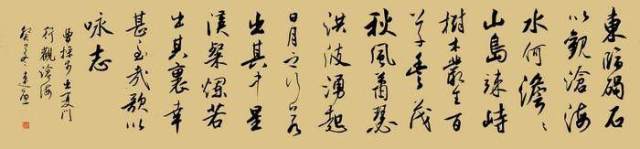 東臨碣石
以觀滄海
水何澹〻
山島竦峙
樹木叢生百
草豐茂
秋風蕭瑟
洪波湧起
日月之行若
出其中星
漢粲爛若
出其裏幸
甚至哉歌以
咏志
曹操步出夏門
行觀滄海